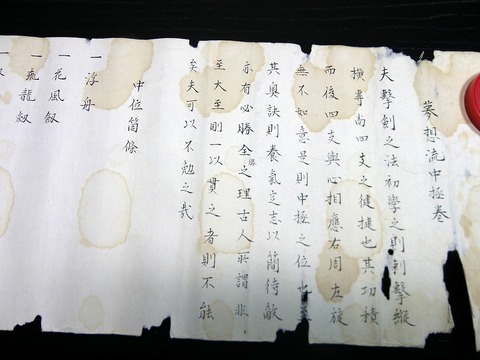 夢想流中極巻
夫擊劍之法初學之則刺擊縱
橫專尚四支之健捷也其功積
而後四支與心相應右周左旋
無不如意是則中極之位也至
其奧訣則養氣定志以簡待敵
亦有必勝全勝之理古人所謂非
至大至剛一以貫之者則不能
矣夫可以不勉之哉
中位箇條
一浮舟
一花風劔
一飛龍劔